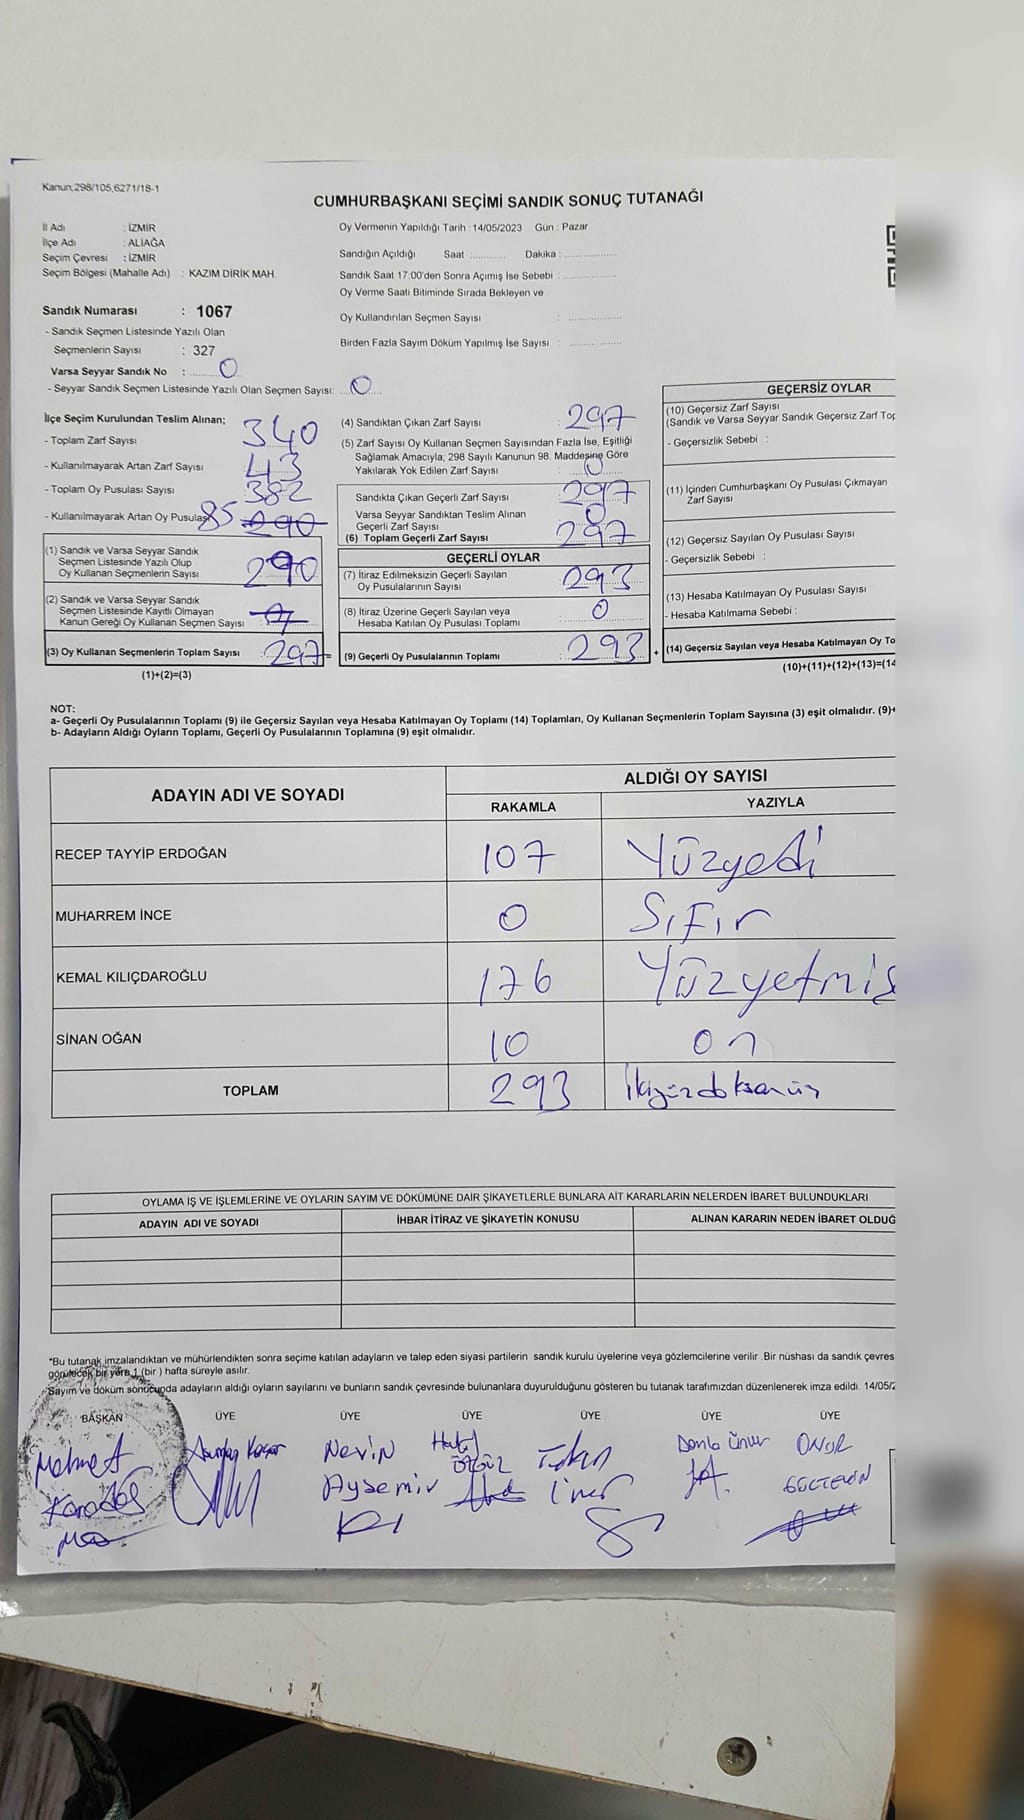 Kanun;298/105,6271/18-1
CUMHURBAŞKANI SEÇİMİ SANDIK SONUÇ TUTANAĞI
İl Adı : İZMİR
İlçe Adı : ALİAĞA
Seçim Çevresi : İZMİR
Seçim Bölgesi (Mahalle Adı) : KAZIM DİRİK MAH.
Sandık Numarası : 1067
- Sandık Seçmen Listesinde Yazılı Olan
Seçmenlerin Sayısı : 327
Varsa Seyyar Sandık No : 0
- Seyyar Sandık Seçmen Listesinde Yazılı Olan Seçmen Sayısı: 0
Oy Vermenin Yapıldığı Tarih : 14/05/2023 Gün : Pazar
Sandığın Açıldığı Saat ............ Dakika : .................
Sandık Saat 17:00'den Sonra Açımış İse Sebebi : .................
Oy Verme Saati Bitiminde Sırada Bekleyen ve
Oy Kullandırılan Seçmen Sayısı : .................
Birden Fazla Sayım Döküm Yapılmış İse Sayısı : .................
İlçe Seçim Kurulundan Teslim Alınan;
- Toplam Zarf Sayısı 340
- Kullanılmayarak Artan Zarf Sayısı 43
- Toplam Oy Pusulası Sayısı 382
- Kullanılmayarak Artan Oy Pusulası 85 290
(1) Sandık ve Varsa Seyyar Sandık
Seçmen Listesinde Yazılı Olup
Oy Kullanan Seçmenlerin Sayısı 290
(2) Sandık ve Varsa Seyyar Sandık
Seçmen Listesinde Kayıtlı Olmayan
Kanun Gereği Oy Kullanan Seçmen Sayısı 7
(3) Oy Kullanan Seçmenlerin Toplam Sayısı 297
(1)+(2)=(3)
(4) Sandıktan Çıkan Zarf Sayısı 297
(5) Zarf Sayısı Oy Kullanan Seçmen Sayısından Fazla İse, Eşitliği
Sağlamak Amacıyla; 298 Sayılı Kanunun 98. Maddesine Göre
Yakılarak Yok Edilen Zarf Sayısı 0
Sandıkta Çıkan Geçerli Zarf Sayısı 297
Varsa Seyyar Sandıktan Teslim Alınan
Geçerli Zarf Sayısı 0
(6) Toplam Geçerli Zarf Sayısı 297
GEÇERLİ OYLAR
(7) İtiraz Edilmeksizin Geçerli Sayılan
Oy Pusulalarının Sayısı 293
(8) İtiraz Üzerine Geçerli Sayılan veya
Hesaba Katılan Oy Pusulası Toplamı 0
= (9) Geçerli Oy Pusulalarının Toplamı 293 +
GEÇERSİZ OYLAR
(10) Geçersiz Zarf Sayısı
(Sandık ve Varsa Seyyar Sandık Geçersiz Zarf Top
- Geçersizlik Sebebi :
(11) İçinden Cumhurbaşkanı Oy Pusulası Çıkmayan
Zarf Sayısı
(12) Geçersiz Sayılan Oy Pusulası Sayısı
- Geçersizlik Sebebi :
(13) Hesaba Katılmayan Oy Pusulası Sayısı
- Hesaba Katılmama Sebebi :
(14) Geçersiz Sayılan veya Hesaba Katılmayan Oy To
(10)+(11)+(12)+(13)=(14
NOT:
a- Geçerli Oy Pusulalarının Toplamı (9) ile Geçersiz Sayılan veya Hesaba Katılmayan Oy Toplamı (14) Toplamları, Oy Kullanan Seçmenlerin Toplam Sayısına (3) eşit olmalıdır. (9)+
b- Adayların Aldığı Oyların Toplamı, Geçerli Oy Pusulalarının Toplamına (9) eşit olmalıdır.
ADAYIN ADI VE SOYADI ALDIĞI OY SAYISI
RAKAMLA YAZIYLA
RECEP TAYYİP ERDOĞAN 107 Yüzyedi
MUHARREM İNCE 0 Sıfır
KEMAL KILIÇDAROĞLU 176 Yüzyetmiş
SİNAN OĞAN 10 on
TOPLAM 293 İkiyüzdoksanüç
OYLAMA İŞ VE İŞLEMLERİNE VE OYLARIN SAYIM VE DÖKÜMÜNE DAİR ŞİKAYETLERLE BUNLARA AİT KARARLARIN NELERDEN İBARET BULUNDUKLARI
ADAYIN ADI VE SOYADI İHBAR İTİRAZ VE ŞİKAYETİN KONUSU ALINAN KARARIN NEDEN İBARET OLDUĞ
*Bu tutanak imzalandıktan ve mühürlendikten sonra seçime katılan adayların ve talep eden siyasi partilerin sandık kurulu üyelerine veya gözlemcilerine verilir .Bir nüshası da sandık çevres
görülecek bir yere 1 (bir ) hafta süreyle asılır.
*Sayım ve döküm sonucunda adayların aldığı oyların sayılarını ve bunların sandık çevresinde bulunanlara duyurulduğunu gösteren bu tutanak tarafımızdan düzenlenerek imza edildi. 14/05/2
BAŞKAN ÜYE ÜYE ÜYE ÜYE ÜYE ÜYE
Mehmet Nevin ONUR
Karadaş Aydemir